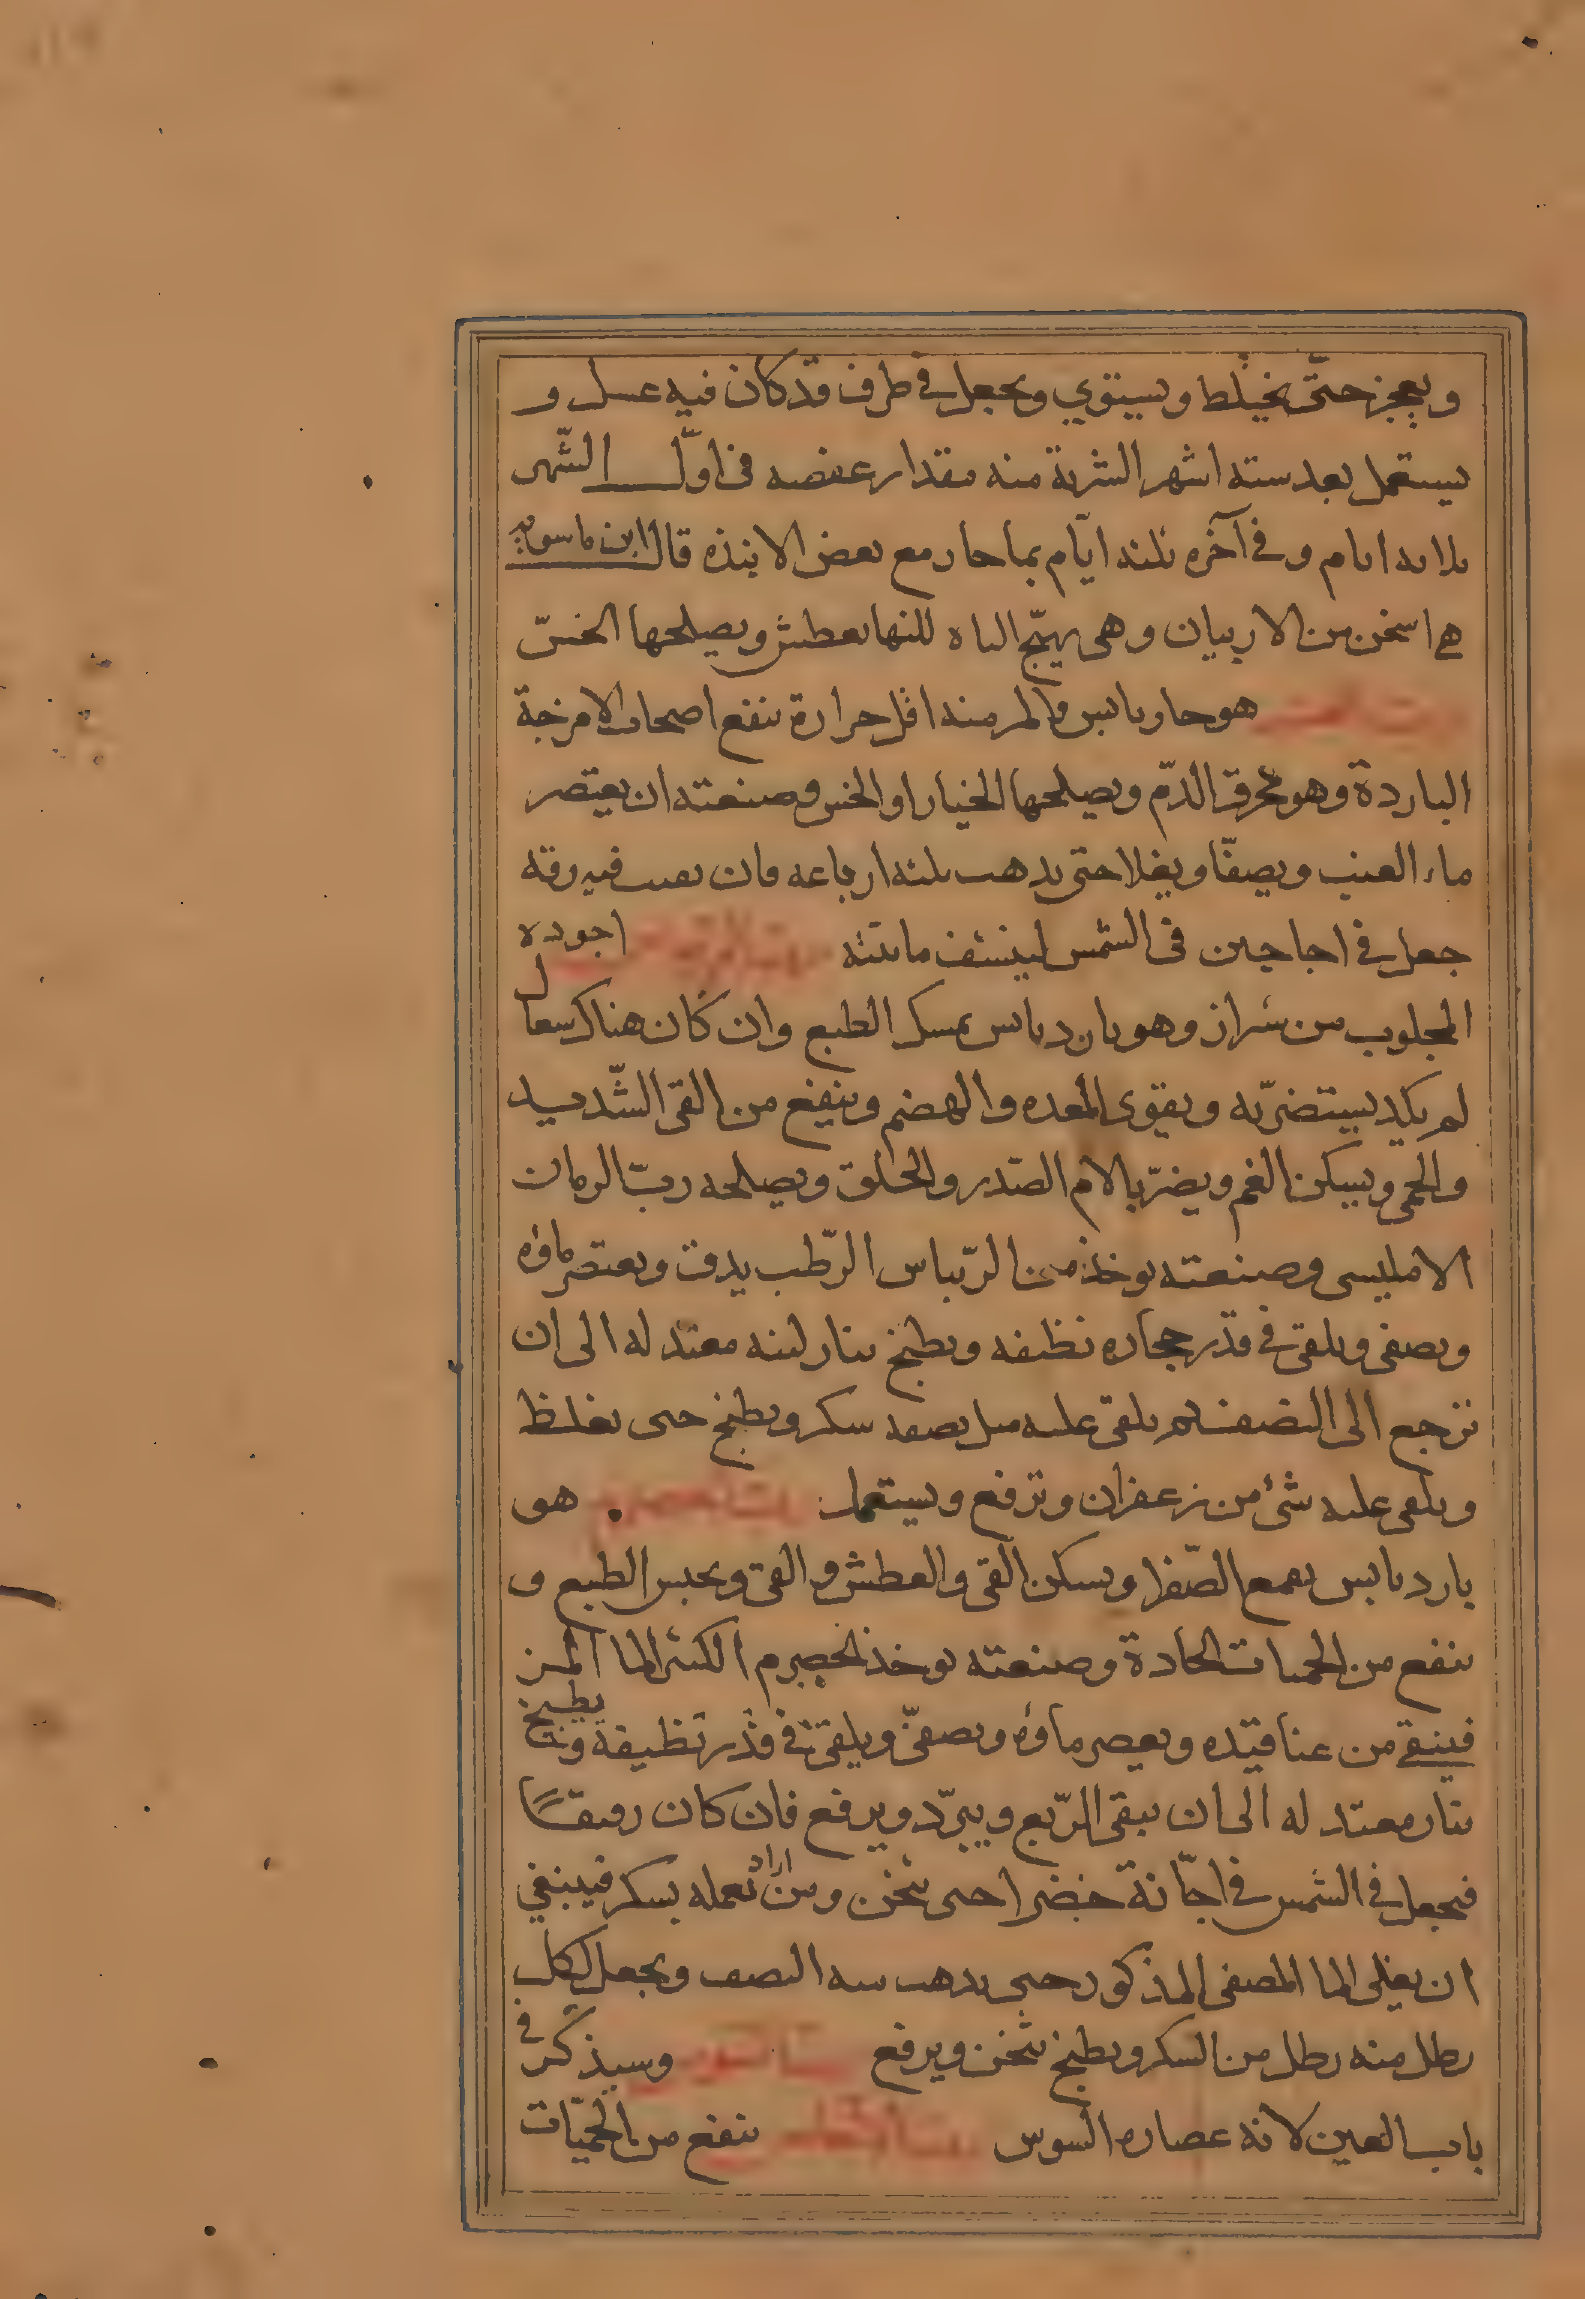 ويعجن حتّى يختلط ويستوي ويجعل في ظرف قد كان فيه عسل و
يستعمل بعد ستة اشهر الشربة منه مقدار عفصه في اوّل الشّهر
ثلاثه ايام وفي آخره ثلثه ايّام بما حار مع بعض الانبذه قال ابن ماسويه
هي اسخن من الاربيان وهي يهيّج الباه لكنها تعطش ويصلحها الخسّ
هو حار يابس والمر منه اقل حرارة ينفع اصحاب الامزجة
الباردة وهو محرق الدّم ويصلحها الخيار او الخس وصنعته ان يعتصر
ماء العنب ويصفّا ويغلا حتى يذهب ثلثه ارباعه فان بقيت فيه رقه
جعل في اجاجين في الشمس لينشف مائيته اجوده
المجلوب من شراز وهو بارد يابس يمسك الطبع وان كان هناك سعال
لم يكد يستضرّ به ويقوى المعده والهضم وينفع من القى الشّديد
والحمى ويسكن الغم ويضرّ بالام الصّدر والحلق ويصلحه ربّ الرمان
الامليسى وصنعته يوخذ من الرّيباس الرّطب يدق ويعتصر ماؤه
ويصفى ويلقى في قدر حجاره نظيفه ويطبخ بنار لينه معتدله الى ان
ترجع الى النصف ثم يلقى عليه مثل نصفه سكر ويطبخ حتى يغلظ
ويلقى عليه شئ من زعفران وترفع ويستعمل هو
بارد يابس يقمع الصّفرا ويسكن القى والعطش والقى ويحبس الطبع و
ينفع من الحميات الحادة وصنعته يوخذ الحصرم الكثير الما المز
فينقى من عناقيده ويعصر ماؤه ويصفىّ ويلقى في قدر نظيفة ويطبخ
بنار معتدله الى ان يبقى الرّبع ويبرّد ويرفع فان كان رقيقًا
فيجعل في الشمس في اجّانة خضرا حتى يثخن ومن اراد تعمله بسكر فينبغي
ان يغلى الما المصفى المذكور حتى يذهب منه النصف ويجعل لكل
رطل منه رطل من السكر ويطبخ يثخن ويرفع وسيذكر في
باب العين لانه عصاره السوس ينفع من الحميّات